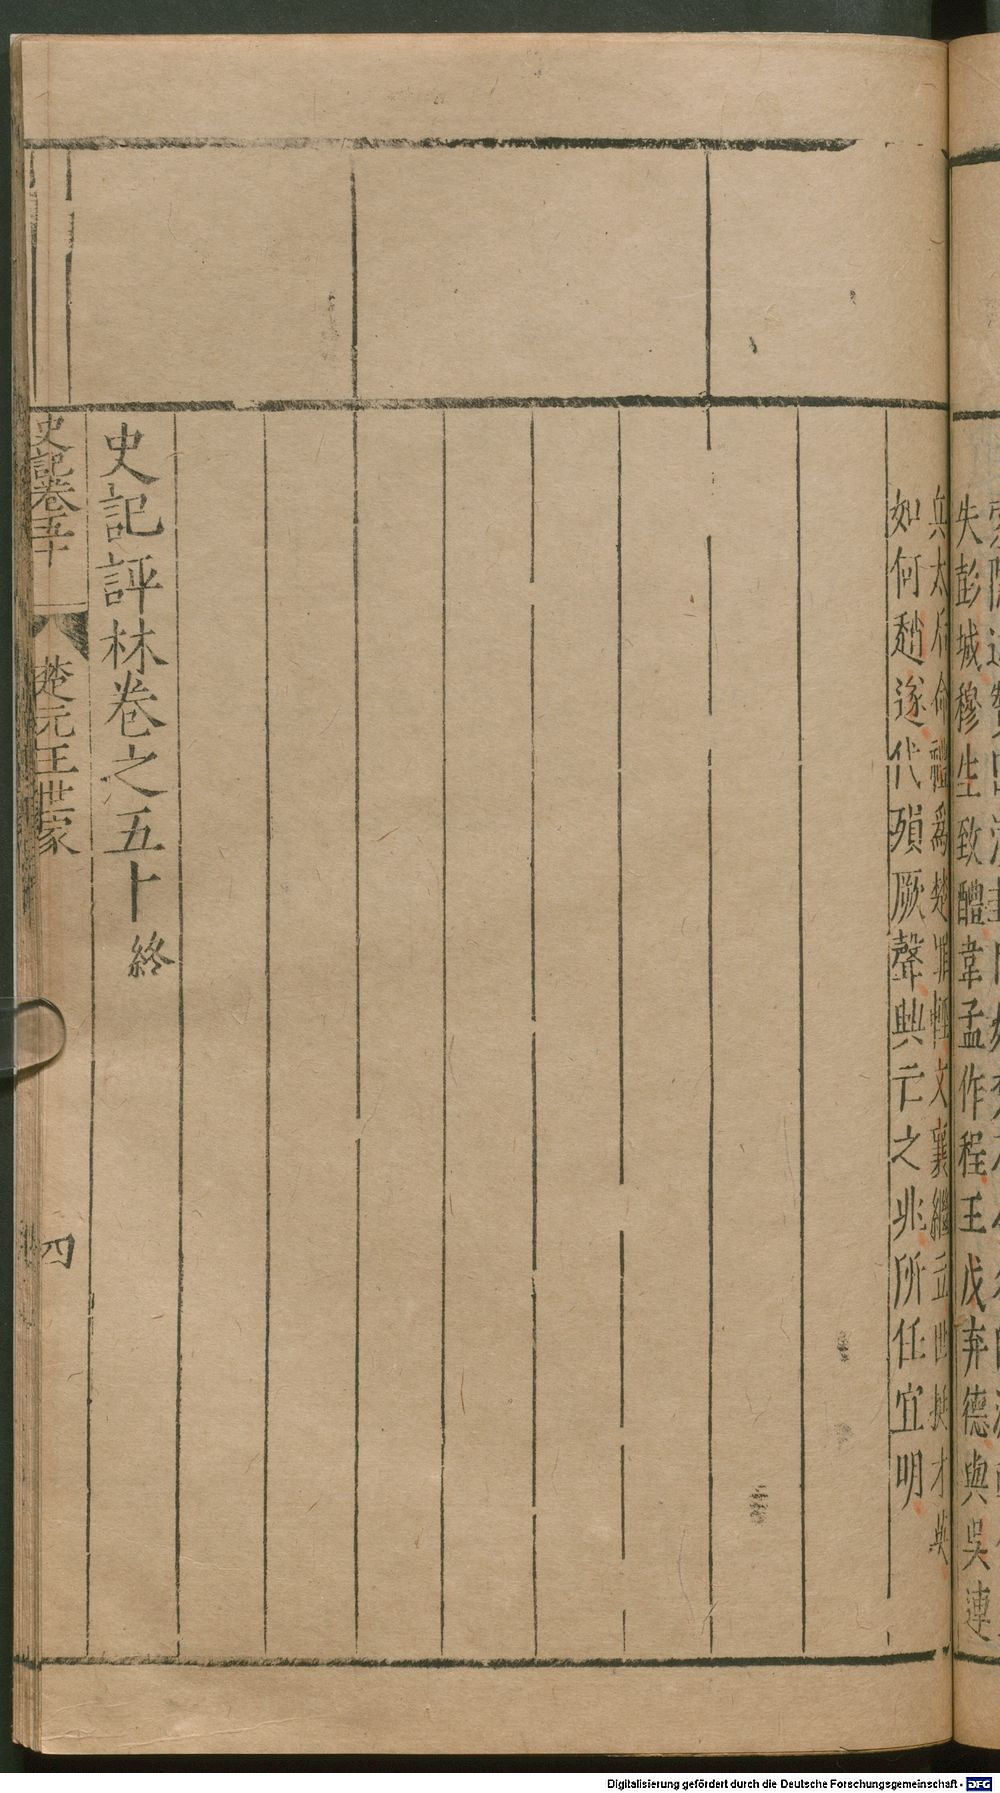 失彭城穆生致醴韋孟作程王戊弃德與吳連
兵太后命禮爲楚罪輕文襄繼立世挺才英
如何趙遂代殞厥聲興亡之兆所任宜明
史記評林卷之五十終
史記卷五十 楚元王世家 四
Digitalisierung gefördert durch die Deutsche Forschungsgemeinschaft - DFG